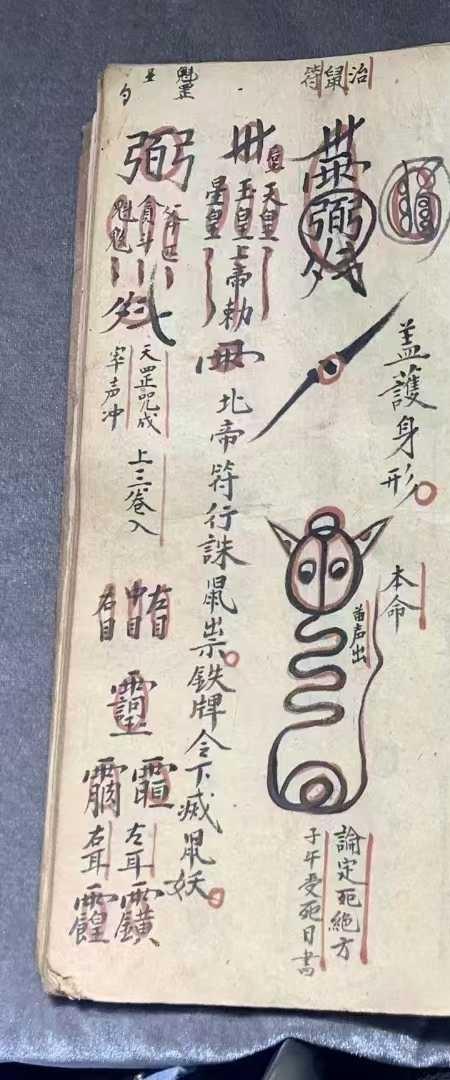 治鼠符
盖護身形
本命
苗声出
論定死絶方
子午受死日書
天皇
玉皇
星皇
上帝勅
北帝符行誅鼠祟鉄牌令下滅鼠妖
魁罡
貪斗
魁魁
天罡咒成
宰声冲
上三巻入
左目
中目
右目
左耳
右耳